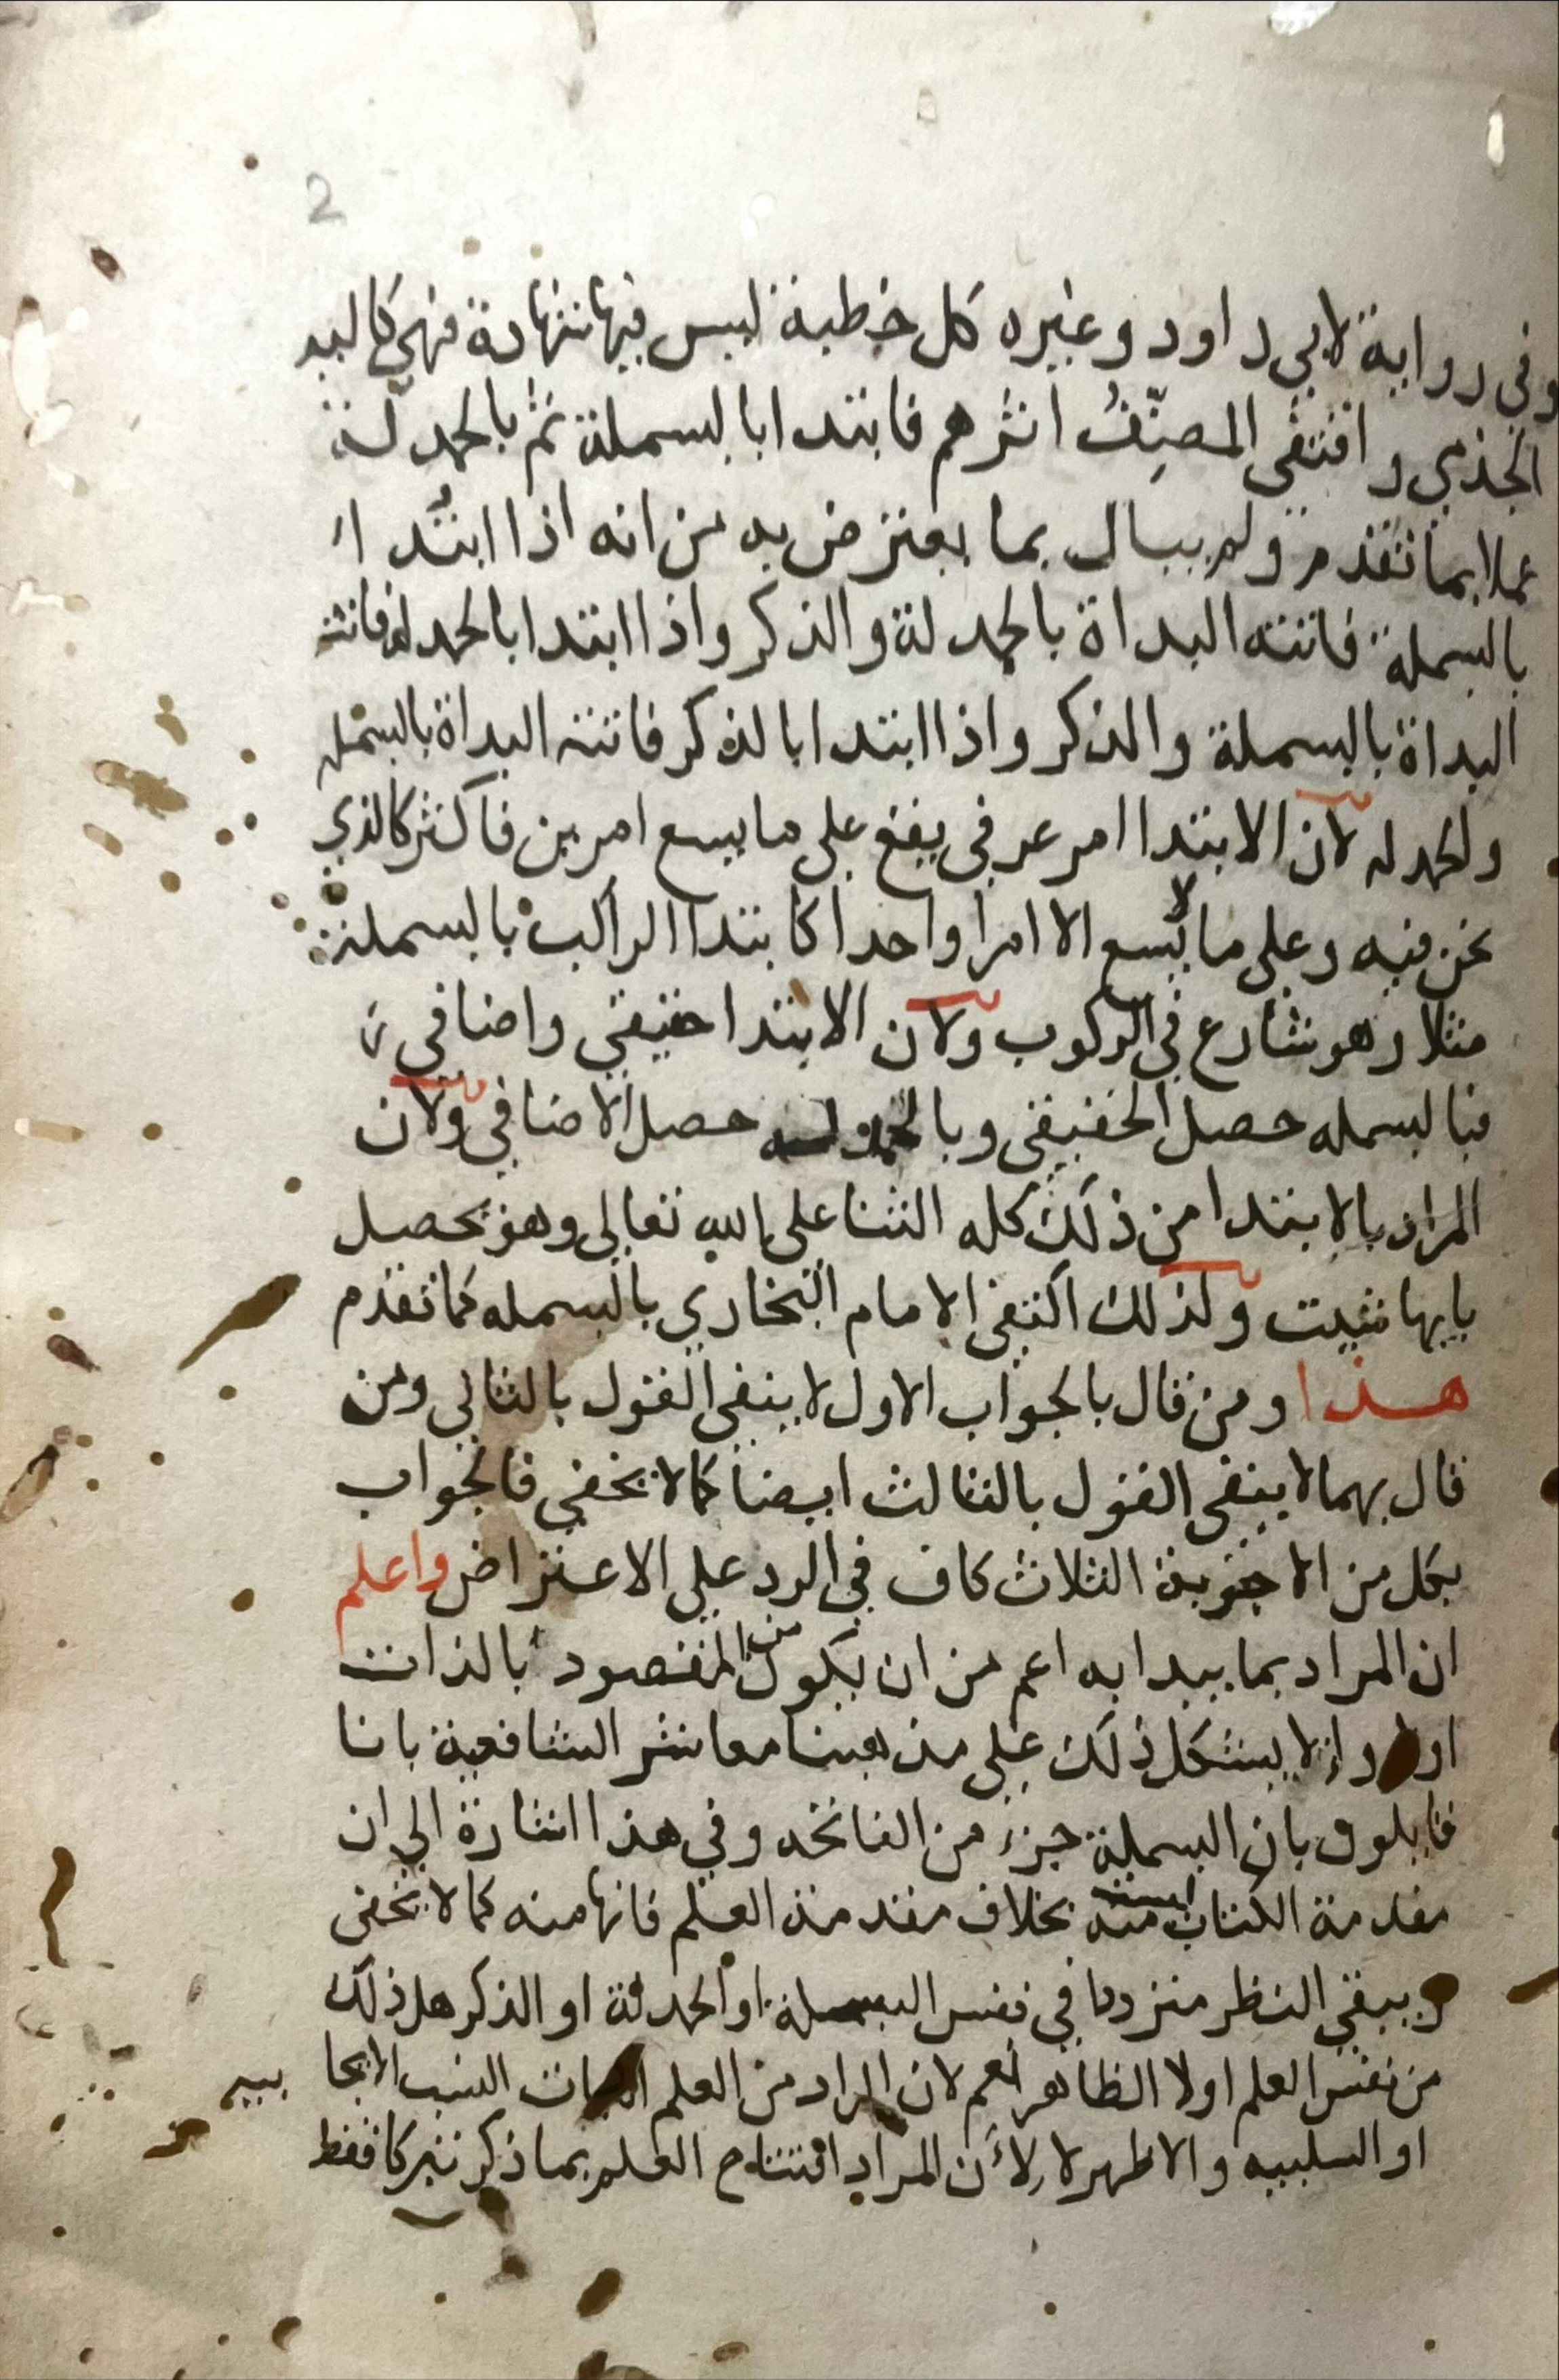 2
وفي رواية لابي داود وغيره كل خطبة ليس فيها شهادة فهي كاليد
الجذمي واقتفى المصنِّفُ اثرهم فابتدا بالبسملة ثم بالحمدلة
عملا بما تقدم ولم يبال بما يعترض به من انه اذا ابتدا
بالبسملة فاتته البداة بالحمدلة والذكر واذا ابتدا بالحمدلة فاتته
البداة بالبسملة والذكر واذا ابتدا بالذكر فاتته البداة بالبسمله
ولحمدله لان الابتدا امر عرفي يقع على ما يسع امرين فاكثر كالذي
نحن فيه وعلى ما لا يسع الا امرا واحدا كابتدا الراكب بالبسملة
مثلا وهو شارع في الركوب ولان الابتدا حقيقي واضافي
فبالبسمله حصل الحقيقي وبالحمدله حصل الاضافي ولان
المراد بالابتدا من ذلك كله الثنا على الله تعالى وهو يحصل
بايها شيت ولذلك اكتفى الامام البخاري بالبسمله كما تقدم
هذا ومن قال بالجواب الاول لا ينفى القول بالثاني ومن
قال بهما لا ينفى القول بالثالث ايضا كما لا يخفي فالجواب
بكل من الاجوبة الثلاث كاف في الرد على الاعتراض واعلم
ان المراد بما يبدا به اعم من ان يكون من المقصود بالذات
او لا واذ لا يستشكل ذلك على مذهبنا معاشر الشافعية بانا
قايلون بان البسملة جزء من الفاتحه وفي هذا اشارة الى ان
مقدمة الكتاب ليست منه بخلاف مقدمة العلم فانها منه كما لا يخفى
ويبقى النظر مترددا في نفس البسملة او الحمدلة او الذكر هل ذلك
من نفس العلم او لا الظاهر نعم لان المراد من العلم النسب الايجا بيه
او السلبيه والاظهر لا لأن المراد افتتاح العلم بما ذكر تبركا فقط